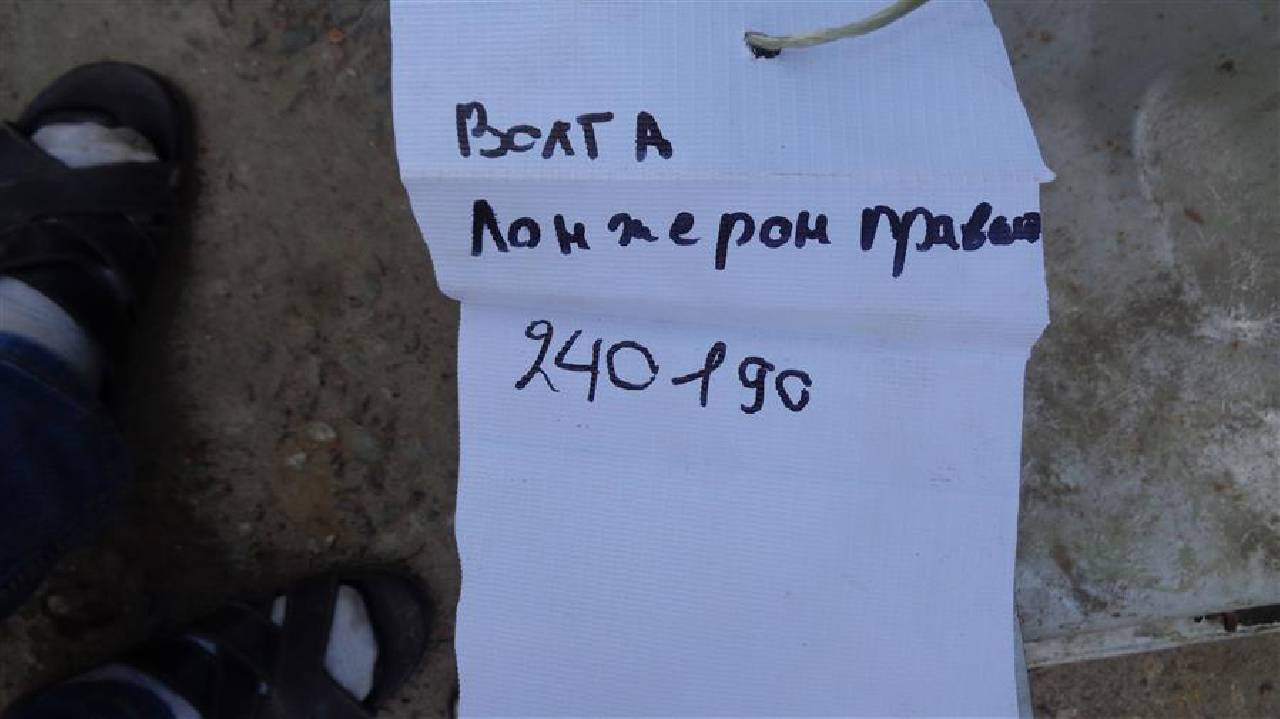 ВОЛГА
Лонжерон правый
240190